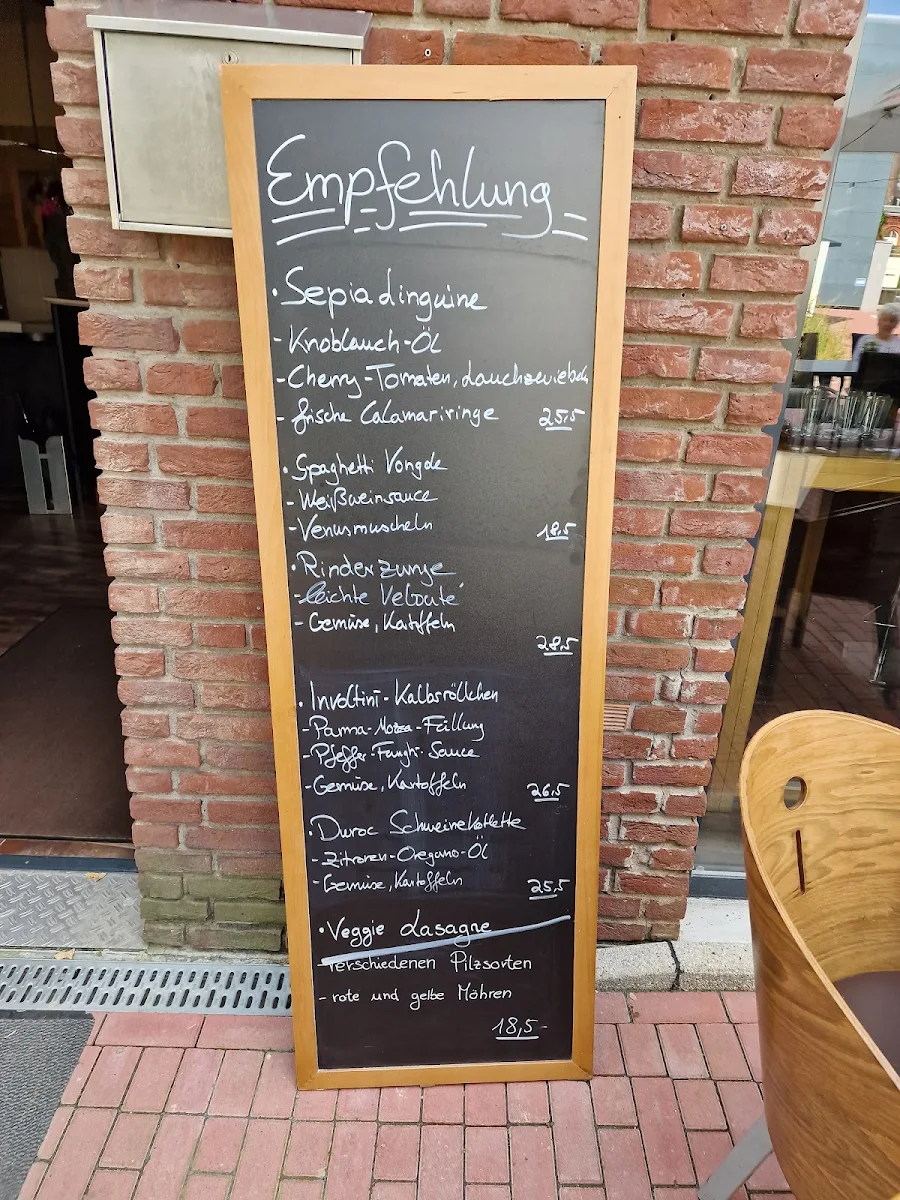 Empfehlung
· Sepia dinguine
- Knoblauch-Öl
- Cherry-Tomaten, Lauchzwiebeln
- frische Calamariringe 25,5
· Spaghetti Vongole
- Weißweinsauce
- Venusmuscheln 18,5
· Rinderzunge
- leichte Velouté
- Gemüse, Kartoffeln
28,5
· Involtini - Kalbsröllchen
- Parma-Mozza-Füllung
- Pfeffer-Funghi-Sauce
- Gemüse, Kartoffeln 26,5
· Duroc Schweinekotlette
- Zitronen-Oregano-Öl
- Gemüse, Kartoffeln 25,5
· Veggie Lasagne
- verschiedenen Pilzsorten
- rote und gelbe Möhren
18,5-